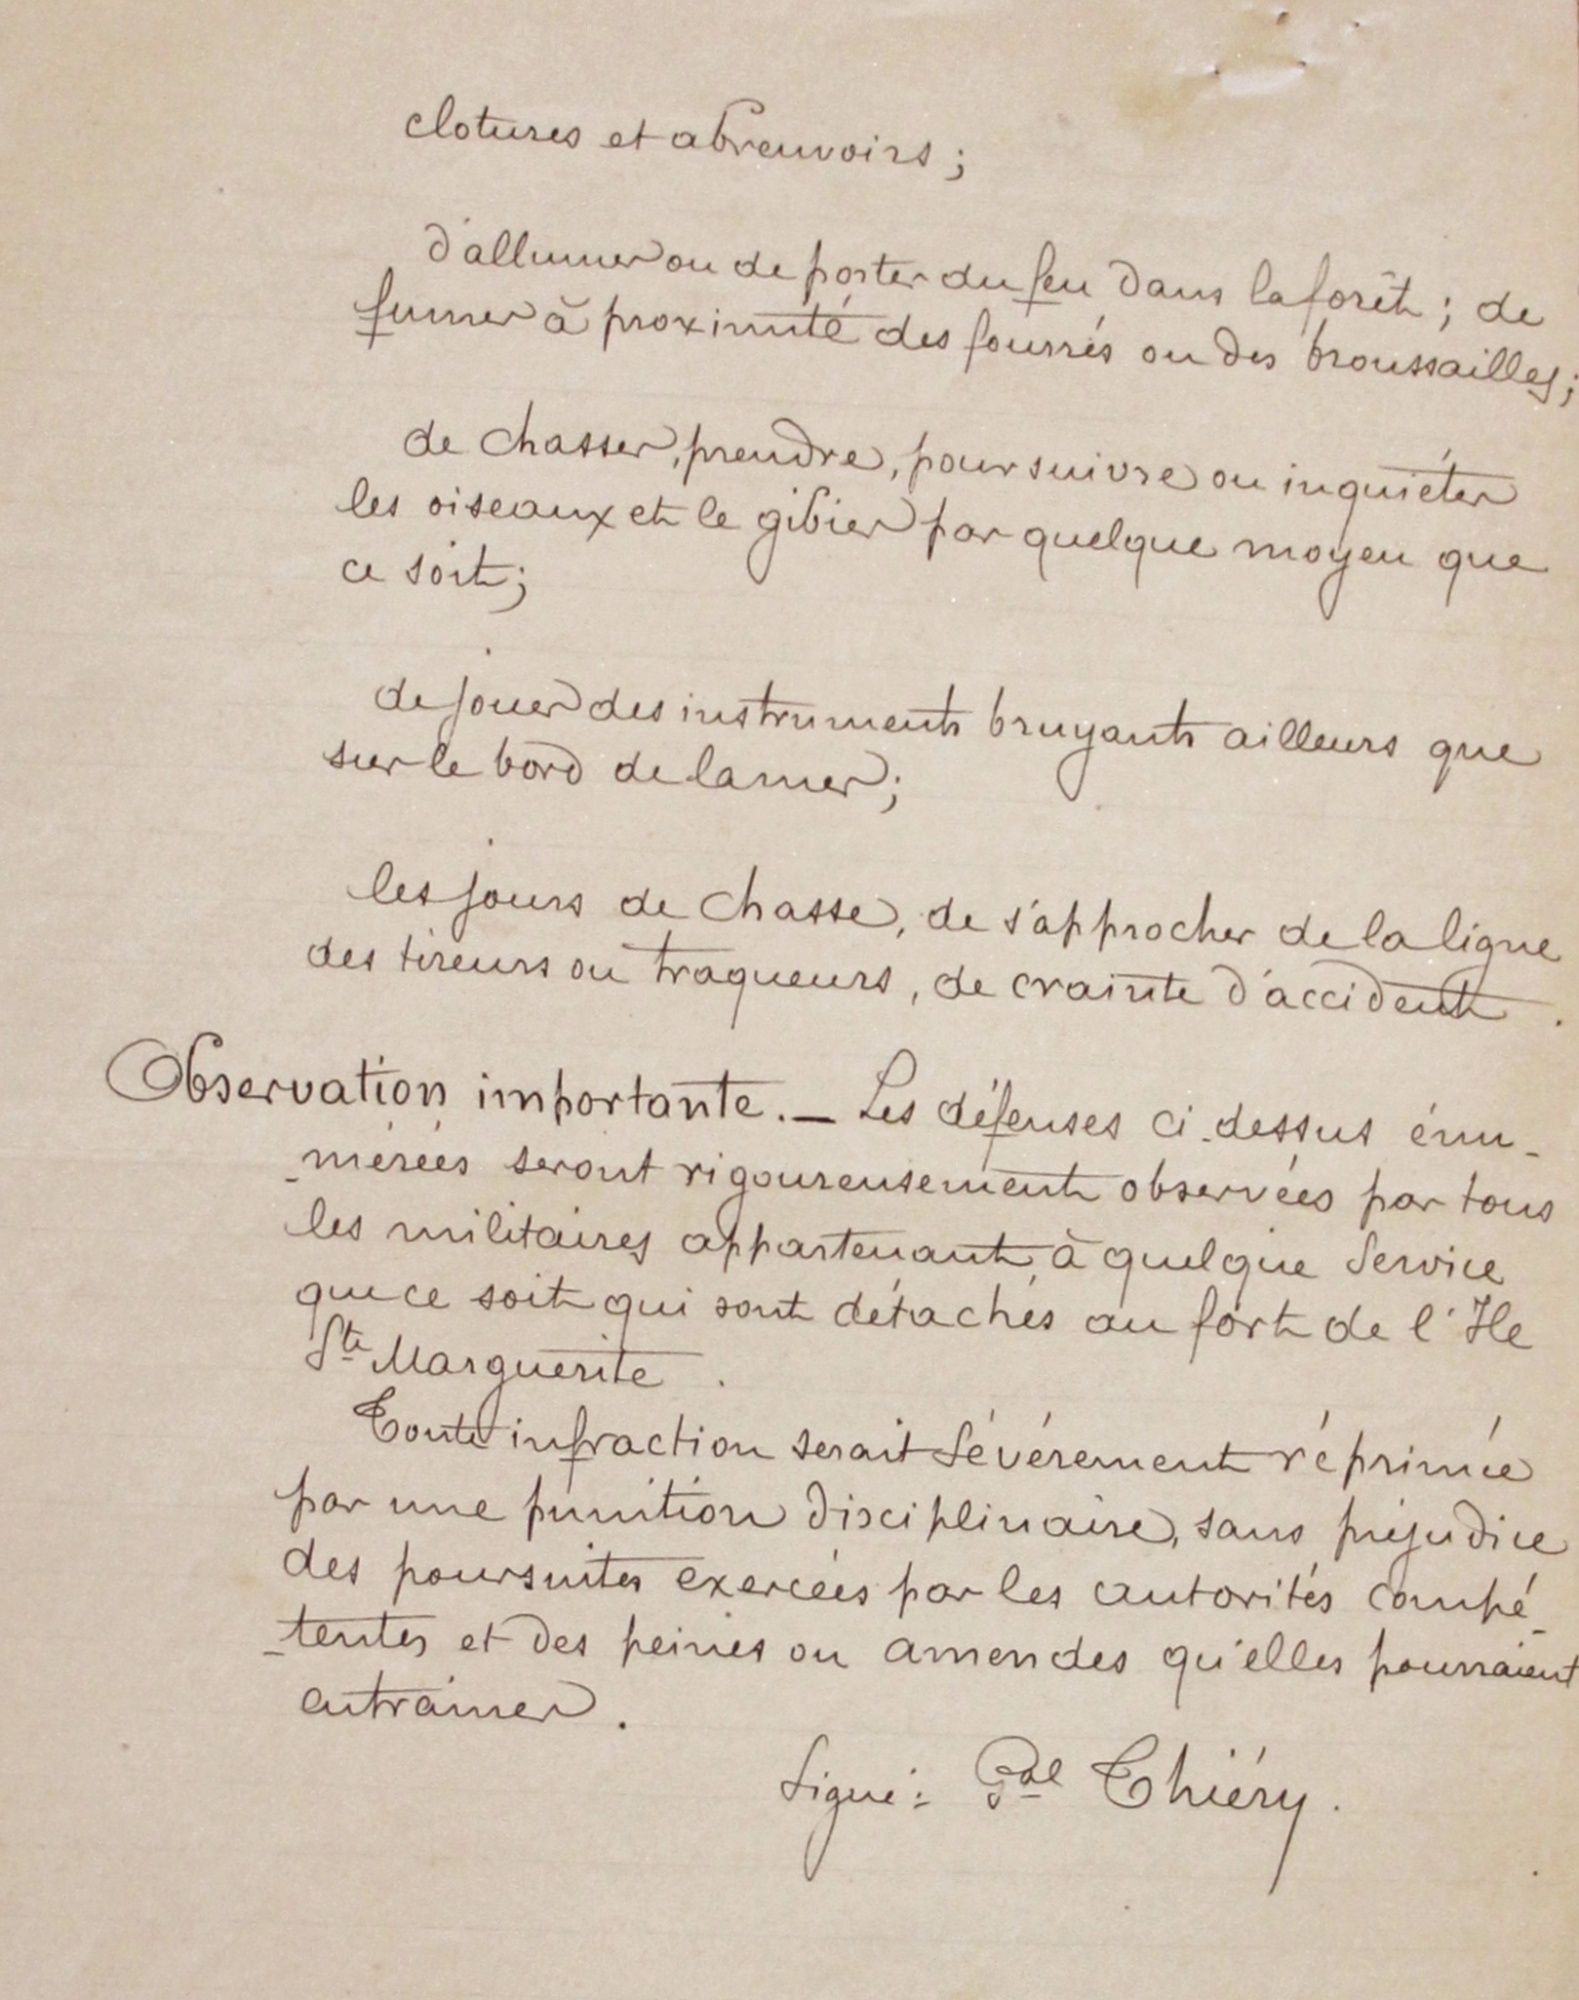 clotures et abreuvoirs ;
d'allumer ou de porter du feu dans la forêt ; de
fumer à proximité des fourrés ou des broussailles ;
de chasser, prendre, poursuivre ou inquiéter
les oiseaux et le gibier par quelque moyen que
ce soit ;
de jouer des instruments bruyants ailleurs que
sur le bord de la mer ;
les jours de chasse, de s'approcher de la ligne
des tireurs ou traqueurs, de crainte d'accident .
Observation importante. — Les défenses ci-dessus énu-
-mérées seront rigoureusement observées par tous
les militaires appartenant à quelque Service
que ce soit qui sont détachés au fort de l'Ile
Ste Marguerite .
Toute infraction serait sévérement réprimée
par une punition disciplinaire, sans préjudice
des poursuites exercées par les autorités compé-
-tentes et des peines ou amendes qu'elles pourraient
entrainer .
Signé : Gal Thiéry .